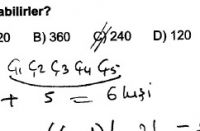 abilirler?
20 B) 360 C) 240 D) 120
Ç1 Ç2 Ç3 Ç4 Ç5
+ 5 = 6 kişi